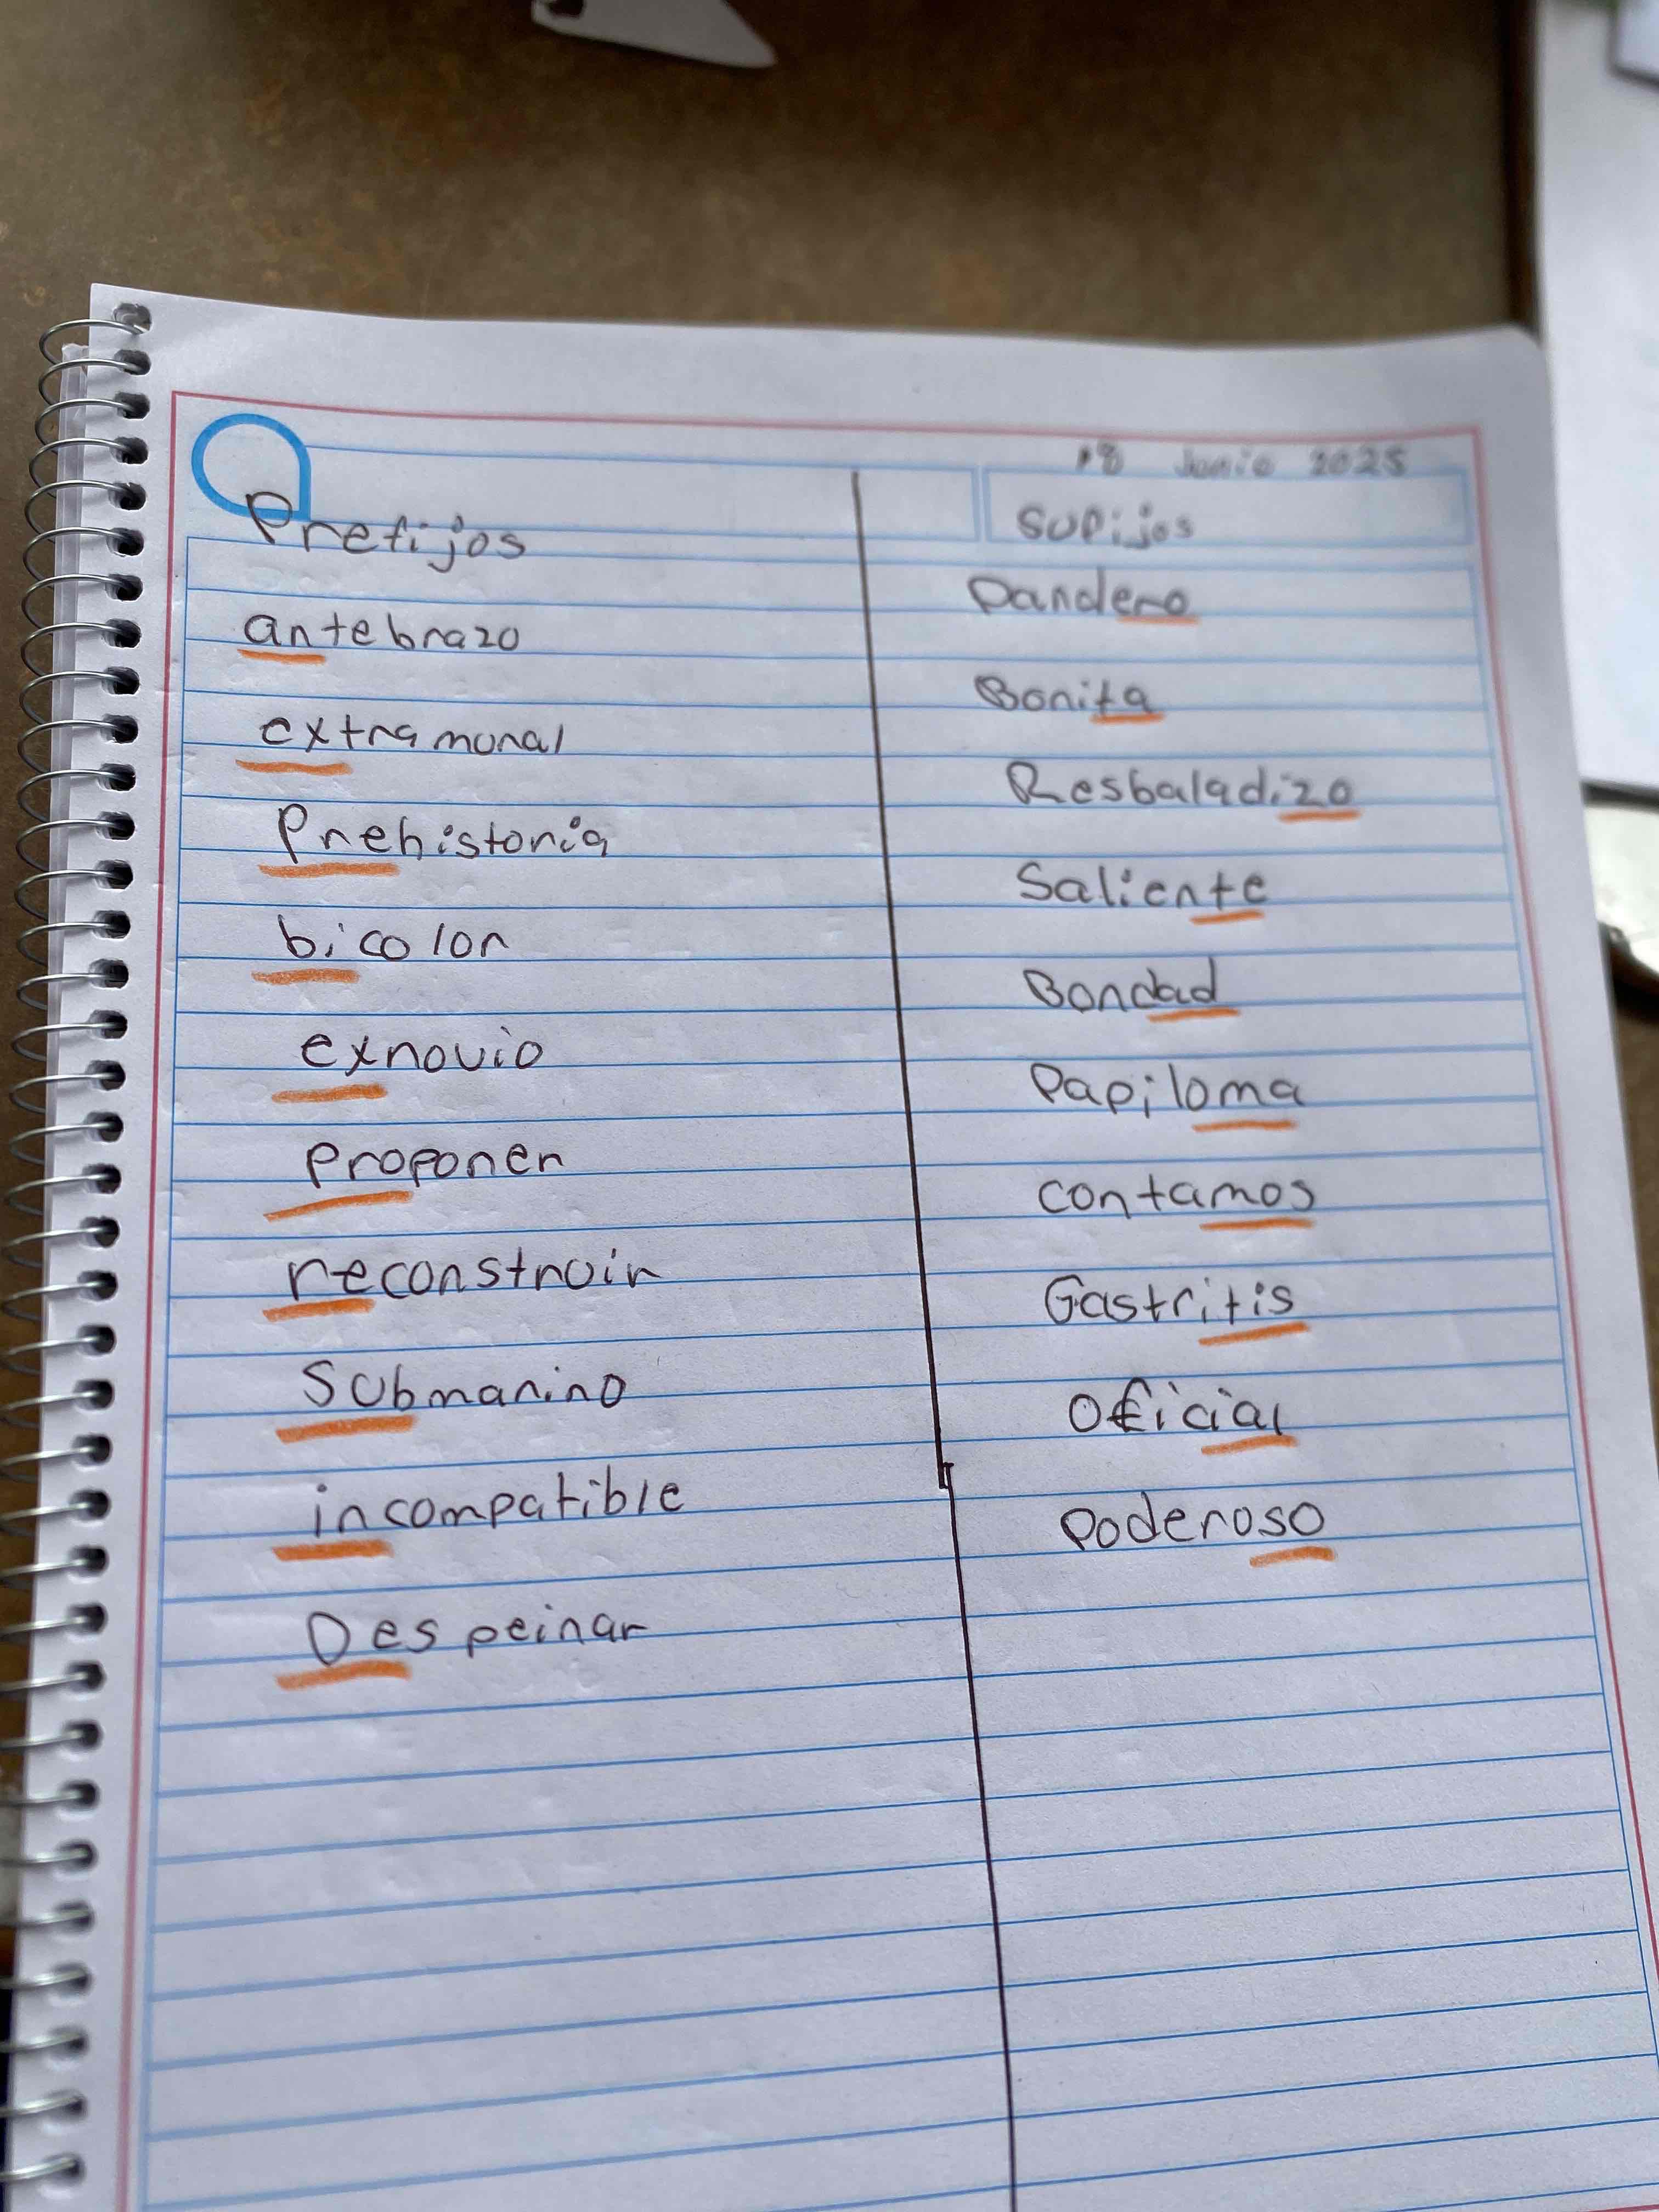 18 Junio 2025
Prefijos
antebrazo
extramural
Prehistoria
bicolor
exnovio
proponer
reconstruir
Submarino
incompatible
Despeinar
Sufijos
Pandero
Bonita
Resbaladizo
Saliente
Bondad
Papiloma
contamos
Gastritis
Oficial
Poderoso